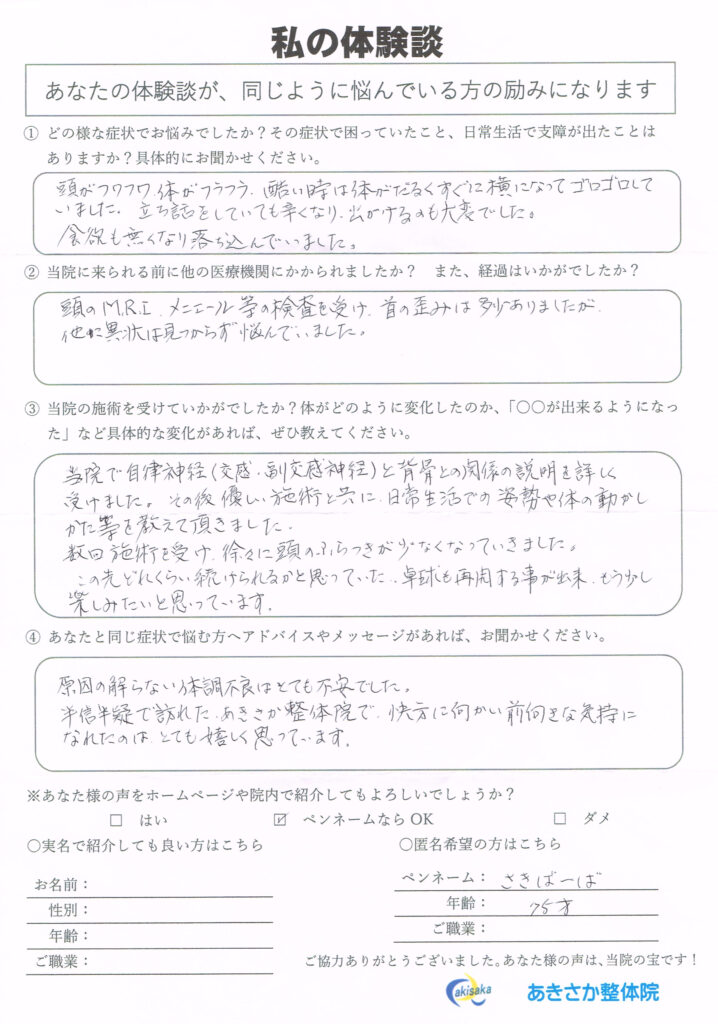 私の体験談
あなたの体験談が、同じように悩んでいる方の励みになります
① どの様な症状でお悩みでしたか？その症状で困っていたこと、日常生活で支障が出たことは
ありますか？具体的にお聞かせください。
頭がフワフワ、体がフラフラ、酷い時は体がだるくすぐに横になってゴロゴロして
いました。立ち話をしていても辛くなり、出かけるのも大変でした。
食欲も無くなり落ち込んでいました。
② 当院に来られる前に他の医療機関にかかられましたか？　また、経過はいかがでしたか？
頭のM.R.I、メニエール等の検査を受け、首の歪みは多少ありましたが、
他に異状は見つからず悩んでいました。
③ 当院の施術を受けていかがでしたか？体がどのように変化したのか、「〇〇が出来るようになっ
た」など具体的な変化があれば、ぜひ教えてください。
当院で自律神経(交感・副交感神経)と背骨との関係の説明を詳しく
受けました。その後優しい施術と共に、日常生活での姿勢や体の動かし
かた等を教えて頂きました。
数回施術を受け、徐々に頭のふらつきが少なくなっていきました。
この先どれくらい続けられるかと思っていた、卓球も再開する事が出来、もう少し
楽しみたいと思っています。
④ あなたと同じ症状で悩む方へアドバイスやメッセージがあれば、お聞かせください。
原因の解らない体調不良はとても不安でした。
半信半疑で訪れた、あきさか整体院で、快方に向かい前向きな気持に
なれたのは、とても嬉しく思っています。
※あなた様の声をホームページや院内で紹介してもよろしいでしょうか？
□ はい　☑ ペンネームなら OK　□ ダメ
〇実名で紹介しても良い方はこちら
お名前：
性別：
年齢：
ご職業：
〇匿名希望の方はこちら
ペンネーム：さきばーば
年齢：75才
ご職業：
ご協力ありがとうございました。あなた様の声は、当院の宝です！
akisaka あきさか整体院